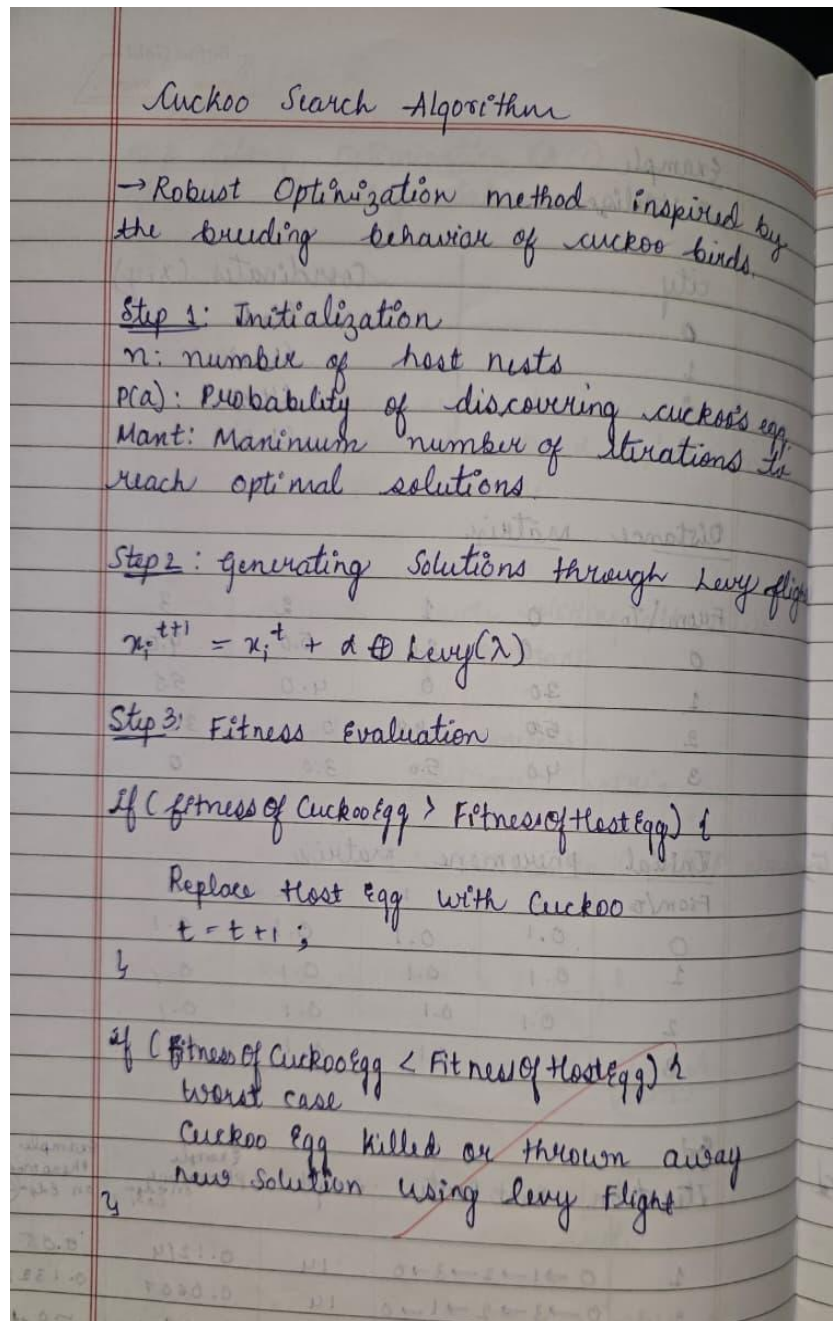 Cuckoo Search Algorithm
→ Robust Optimization method inspired by
the breeding behavior of cuckoo birds.
Step 1: Initialization
n: number of host nests
P(a): Probability of discovering cuckoo's egg
Maxt: Maximum number of iterations to
reach optimal solutions
Step 2: Generating Solutions through Levy flight
xᵢᵗ⁺¹ = xᵢᵗ + α ⊕ Levy(λ)
Step 3: Fitness Evaluation
If (fitness of Cuckoo Egg > Fitness of Host Egg) {
Replace Host Egg with Cuckoo
t = t + 1 ;
}
if (Fitness of Cuckoo egg < Fitness of Host Egg) {
Worst case
Cuckoo Egg killed or thrown away
new Solution using levy Flight
}